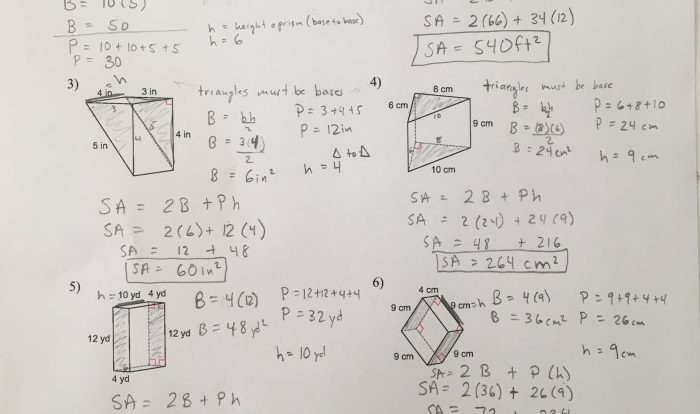 B = 10(5)
B = 50
P = 10 + 10 + 5 + 5
P = 30
h = height of prism (base to base)
h = 6
SA = 2(66) + 34(12)
SA = 540ft²
3)
= h
4 in
3 in
3
5
4
4 in
5 in
triangles must be bases
B = bh/2
B = 3(4)/2
B = 6in²
P = 3+4+5
P = 12in
Δ to Δ
h = 4
SA = 2B + Ph
SA = 2(6) + 12(4)
SA = 12 + 48
SA = 60in²
4)
8 cm
6 cm
10
9 cm
8
6
10 cm
triangles must be base
B = bh/2
B = (8)(6)/2
B = 24cm²
P = 6+8+10
P = 24 cm
h = 9 cm
SA = 2B + Ph
SA = 2(24) + 24(9)
SA = 48 + 216
SA = 264 cm²
5)
h = 10 yd
4 yd
12 yd
12 yd
4 yd
B = 4(12)
B = 48yd²
P = 12+12+4+4
P = 32yd
h = 10 yd
SA = 2B + Ph
6)
4 cm
9 cm
9 cm=h
9 cm
9 cm
B = 4(9)
B = 36cm²
P = 9+9+4+4
P = 26cm
h = 9cm
SA = 2B + P(h)
SA = 2(36) + 26(9)
SA = 72 + 234